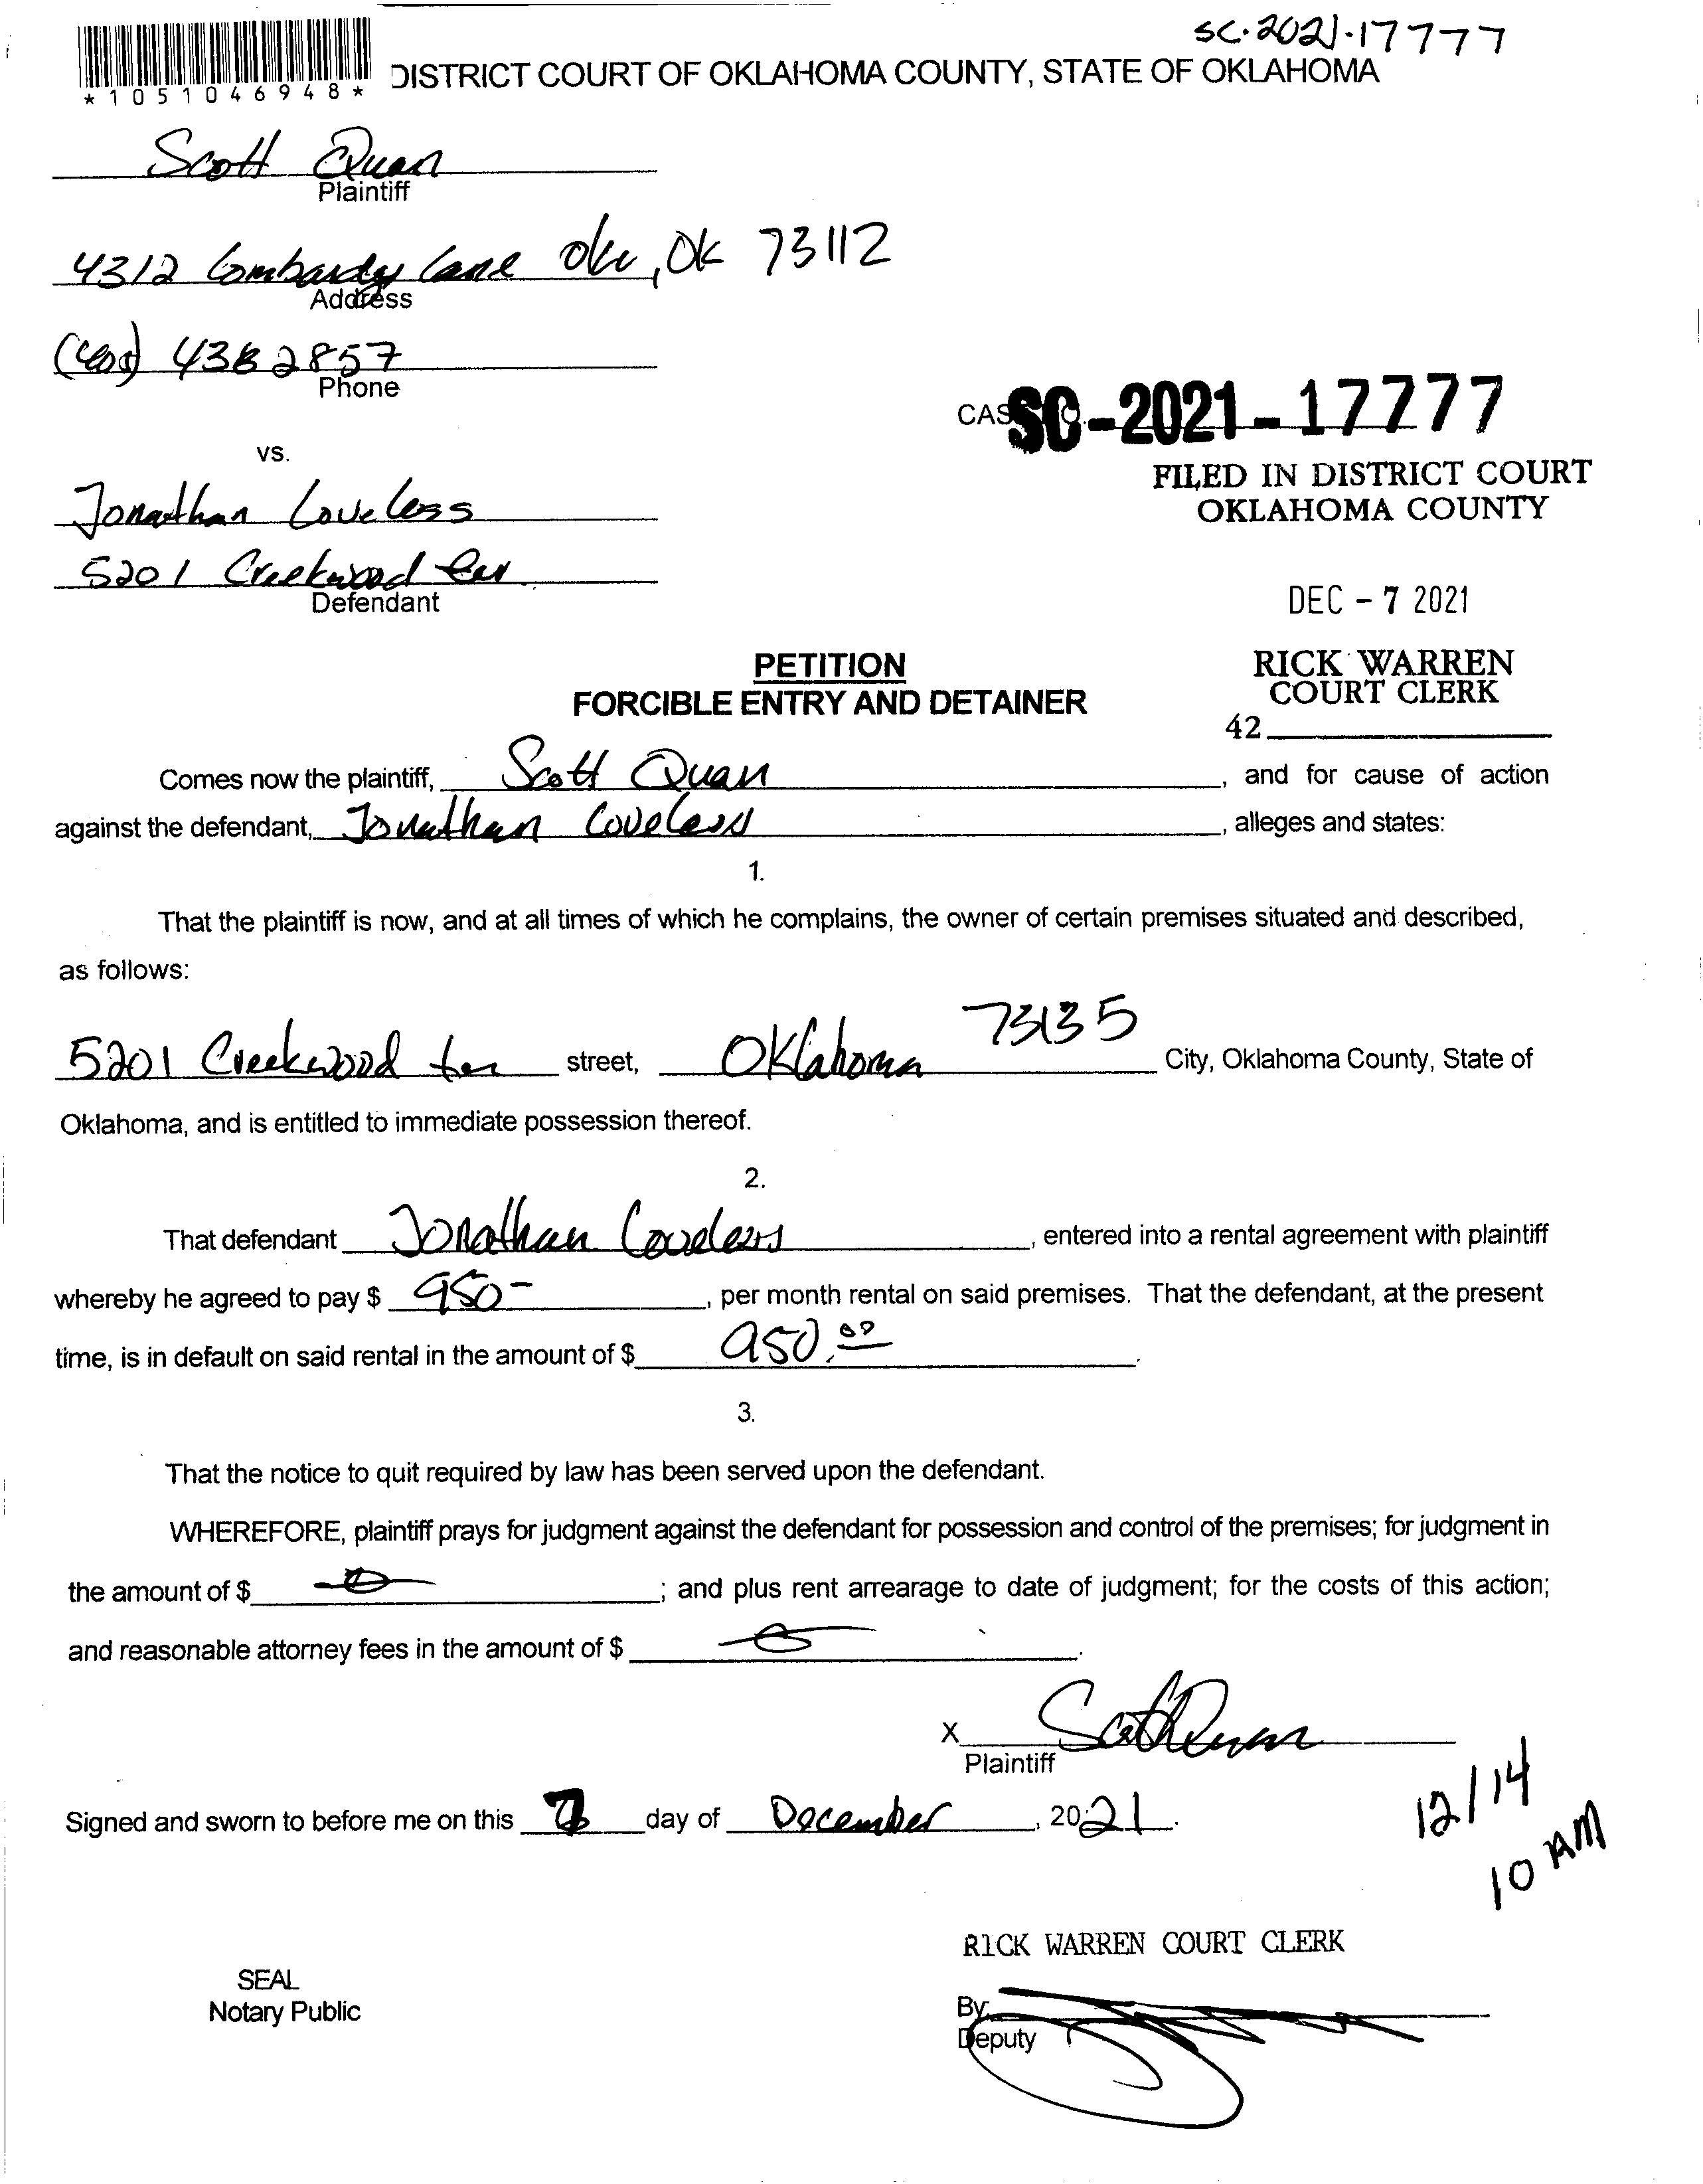 SC-2021-17777
*1051046948*
DISTRICT COURT OF OKLAHOMA COUNTY, STATE OF OKLAHOMA
Scott Quan
Plaintiff
4312 Lombardy Lane OKC, OK 73112
Address
2857
Phone
CAS SC-2021-17777
vs.
FILED IN DISTRICT COURT
OKLAHOMA COUNTY
Jonathan Loveless
5201 Creekwood Ter
Defendant
DEC - 7 2021
PETITION
FORCIBLE ENTRY AND DETAINER
RICK WARREN
COURT CLERK
42
Comes now the plaintiff, Scott Quan, and for cause of action
against the defendant, Jonathan Loveless, alleges and states:
1.
That the plaintiff is now, and at all times of which he complains, the owner of certain premises situated and described,
as follows:
5201 Creekwood ter street, Oklahoma 73135 City, Oklahoma County, State of
Oklahoma, and is entitled to immediate possession thereof.
2.
That defendant Jonathan Loveless, entered into a rental agreement with plaintiff
whereby he agreed to pay $ 950-, per month rental on said premises. That the defendant, at the present
time, is in default on said rental in the amount of $ 950.00.
3.
That the notice to quit required by law has been served upon the defendant.
WHEREFORE, plaintiff prays for judgment against the defendant for possession and control of the premises; for judgment in
the amount of $ 0; and plus rent arrearage to date of judgment; for the costs of this action;
and reasonable attorney fees in the amount of $ 0.
X Scott Quan
Plaintiff
Signed and sworn to before me on this 7 day of December, 2021.
12/14
10 AM
RICK WARREN COURT CLERK
SEAL
Notary Public
By:
Deputy